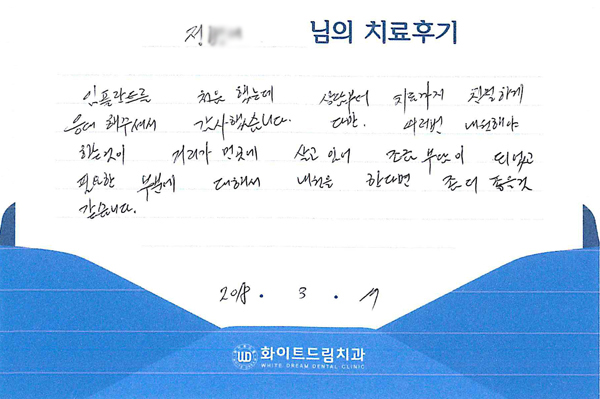 정 님의 치료후기
임플란트를 처음 했는데 상담부터 치료까지 친절하게
응대 해주셔서 감사했습니다. 다만, 여러번 내원해야
하는것이 거리가 먼곳에 살고 있어 조금 부담이 되었고
필요한 부분에 대해서 내원을 한다면 좀 더 좋을것
같습니다.
2018. 3.
화이트드림치과
WHITE DREAM DENTAL CLINIC